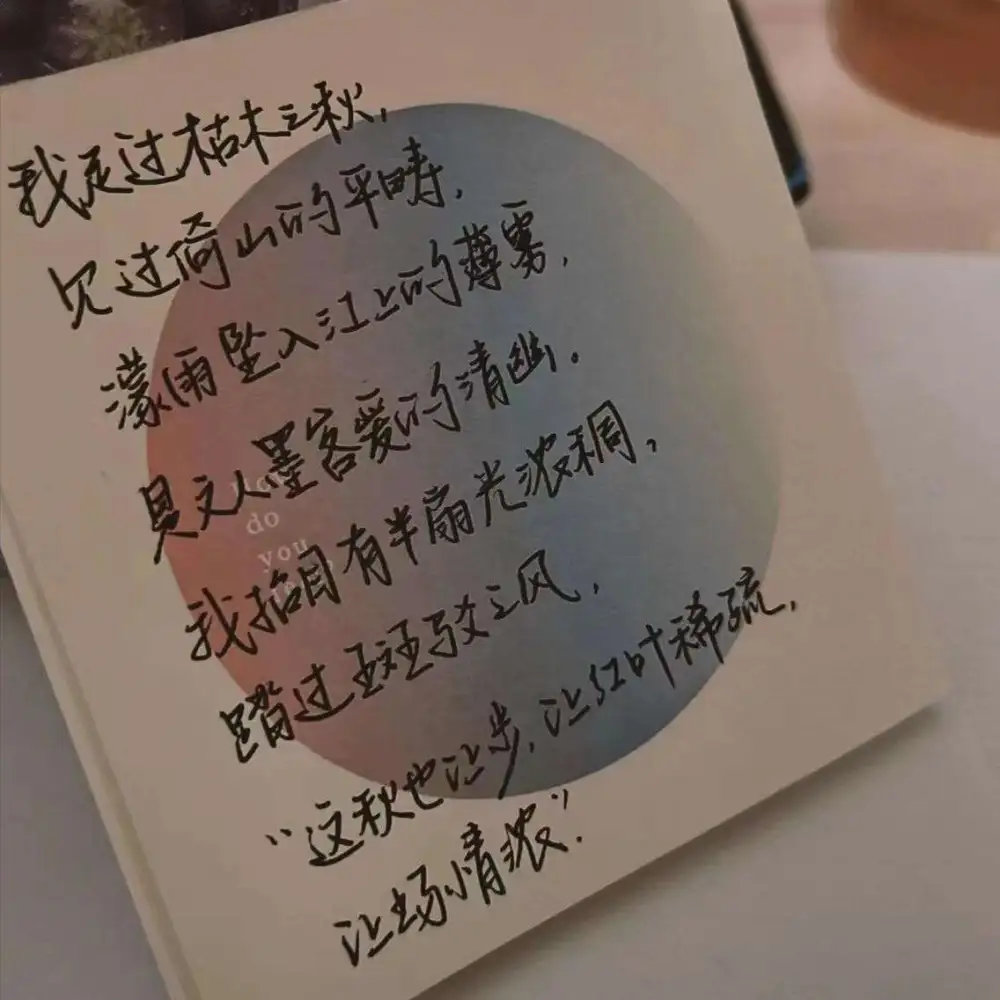 我走过枯木之秋，
见过倚山的平畴，
濛雨坠入江上的薄雾，
是文人墨客爱的清幽。
我抬目有半扇光浓稠，
踏过斑驳之风，
“这秋也让步，让红叶稀疏，
让场情浓”.
do
you